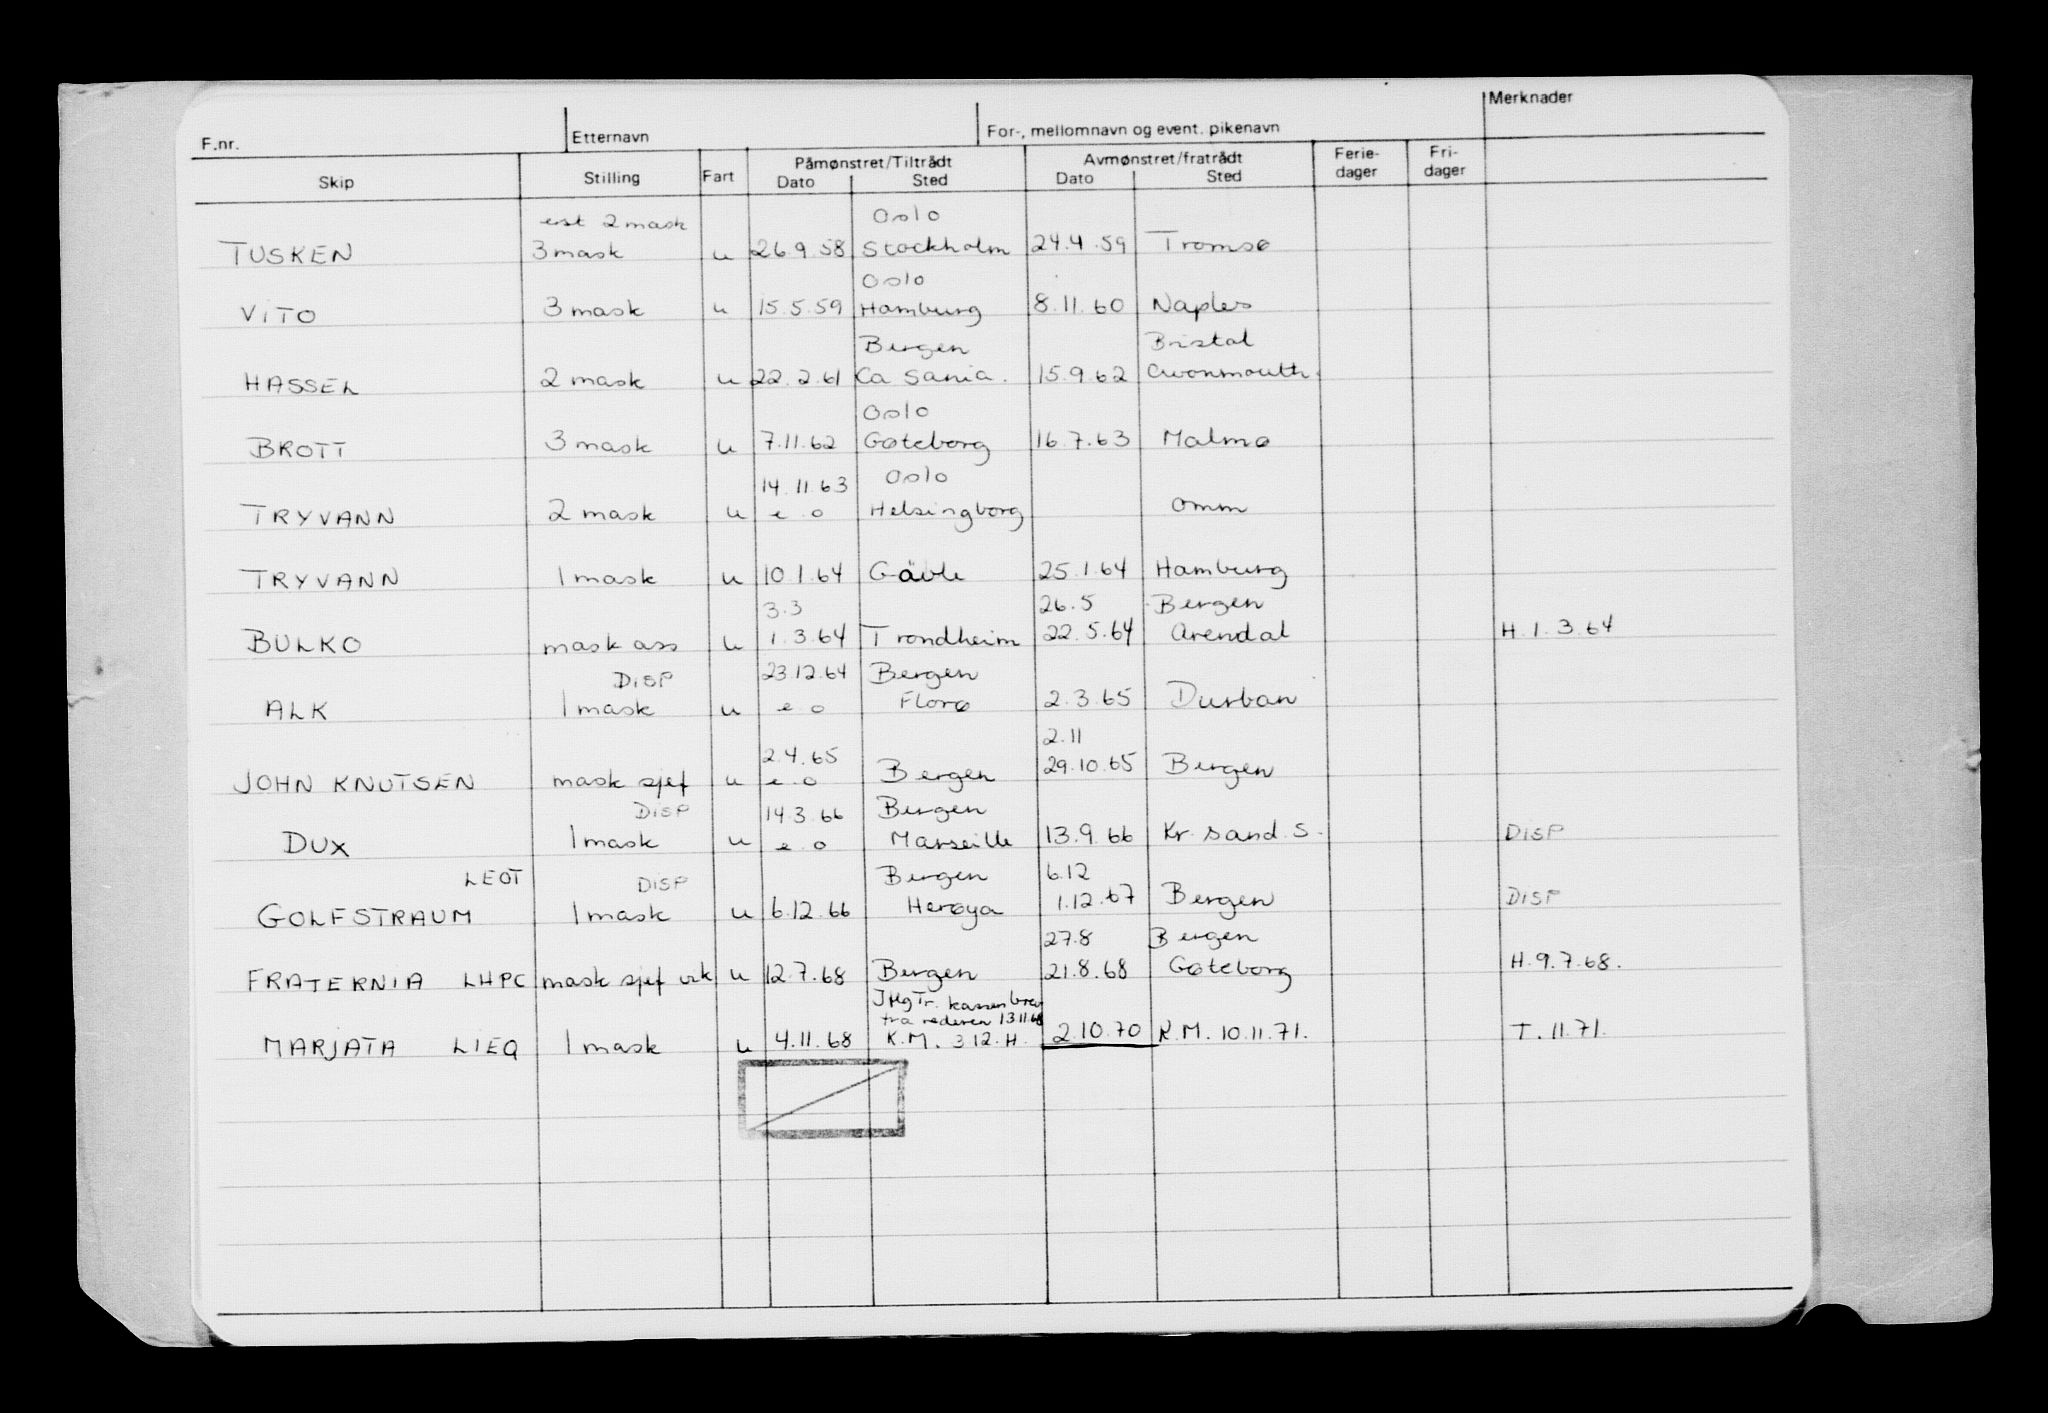 F.nr. Etternavn For-, mellomnavn og event. pikenavn Merknader
Skip Stilling Fart Påmønstret/Tiltrådt Avmønstret/fratrådt Ferie- Fri-
Dato Sted Dato Sted dager dager
erst 2 mask Oslo
TUSKEN 3 mask u 26.9.58 Stockholm 24.4.59 Tromsø
Oslo
VITO 3 mask u 15.5.59 Hamburg 8.11.60 Naples
Bergen Bristol
HASSEL 2 mask u 22.2.61 Ca Sania. 15.9.62 Avonmouth
Oslo
BROTT 3 mask u 7.11.62 Gøteborg 16.7.63 Malmø
14.11.63 Oslo
TRYVANN 2 mask u e.o Helsingborg omm
TRYVANN 1 mask u 10.1.64 Gävle 25.1.64 Hamburg
3.3 26.5 Bergen
BULKO mask ass u 1.3.64 Trondheim 22.5.64 Arendal H.1.3.64
DISP 23.12.64 Bergen
ALK 1 mask u e.o Florø 2.3.65 Durban
2.4.65 2.11
JOHN KNUTSEN mask sjef u e.o Bergen 29.10.65 Bergen
DISP 14.3.66 Bergen
DUX 1 mask u e.o Marseille 13.9.66 Kr. sand. S. DISP
LEOT DISP Bergen 6.12
GOLFSTRAUM 1 mask u 6.12.66 Herøya 1.12.67 Bergen DISP
27.8 Bergen
FRATERNIA LHPC mask sjef vik u 12.7.68 Bergen 21.8.68 Gøteborg H.9.7.68.
Tr. kassen brev
fra rederen 13.11.68
MARJATA LIEQ 1 mask u 4.11.68 K.M. 3 12. H. 2.10.70 R.M. 10.11.71. T. 11.71.